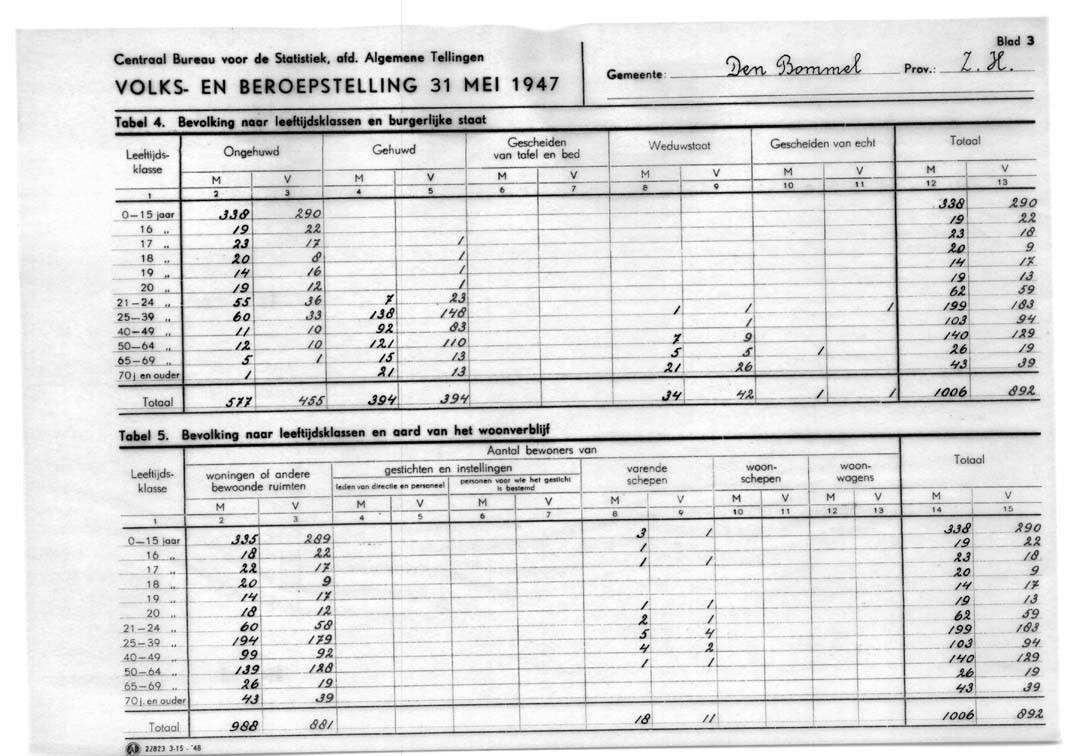 Blad 3
Centraal Bureau voor de Statistiek, afd. Algemene Tellingen
VOLKS- EN BEROEPSTELLING 31 MEI 1947
Gemeente: Den Bommel Prov.: Z. H.
Tabel 4. Bevolking naar leeftijdsklassen en burgerlijke staat
Leeftijds-klasse Ongehuwd Gehuwd Gescheiden van tafel en bed Weduwstaat Gescheiden van echt Totaal
M V M V M V M V M V M V
1 2 3 4 5 6 7 8 9 10 11 12 13
0-15 jaar 338 290 338 290
16 „ 19 22 19 22
17 „ 23 17 1 23 18
18 „ 20 8 1 20 9
19 „ 14 16 1 14 17
20 „ 19 12 1 19 13
21-24 „ 55 36 7 23 62 59
25-39 „ 60 33 138 148 1 1 1 199 183
40-49 „ 11 10 92 83 1 103 94
50-64 „ 12 10 121 110 7 9 140 129
65-69 „ 5 1 15 13 5 5 1 26 19
70 j en ouder 1 21 13 21 26 43 39
Totaal 577 455 394 394 34 42 1 1 1006 892
Tabel 5. Bevolking naar leeftijdsklassen en aard van het woonverblijf
Aantal bewoners van
Leeftijds-klasse woningen of andere bewoonde ruimten gestichten en instellingen varende schepen woon-schepen woon-wagens Totaal
leden van directie en personeel personen voor wie het gesticht is bestemd
M V M V M V M V M V M V M V
1 2 3 4 5 6 7 8 9 10 11 12 13 14 15
0-15 jaar 335 289 3 1 338 290
16 „ 18 22 1 19 22
17 „ 22 17 1 1 23 18
18 „ 20 9 20 9
19 „ 14 17 14 17
20 „ 18 12 1 1 19 13
21-24 „ 60 58 2 1 62 59
25-39 „ 194 179 5 4 199 183
40-49 „ 99 92 4 2 103 94
50-64 „ 139 128 1 1 140 129
65-69 „ 26 19 26 19
70 j. en ouder 43 39 43 39
Totaal 988 881 18 11 1006 892
22823 3-15 - '48